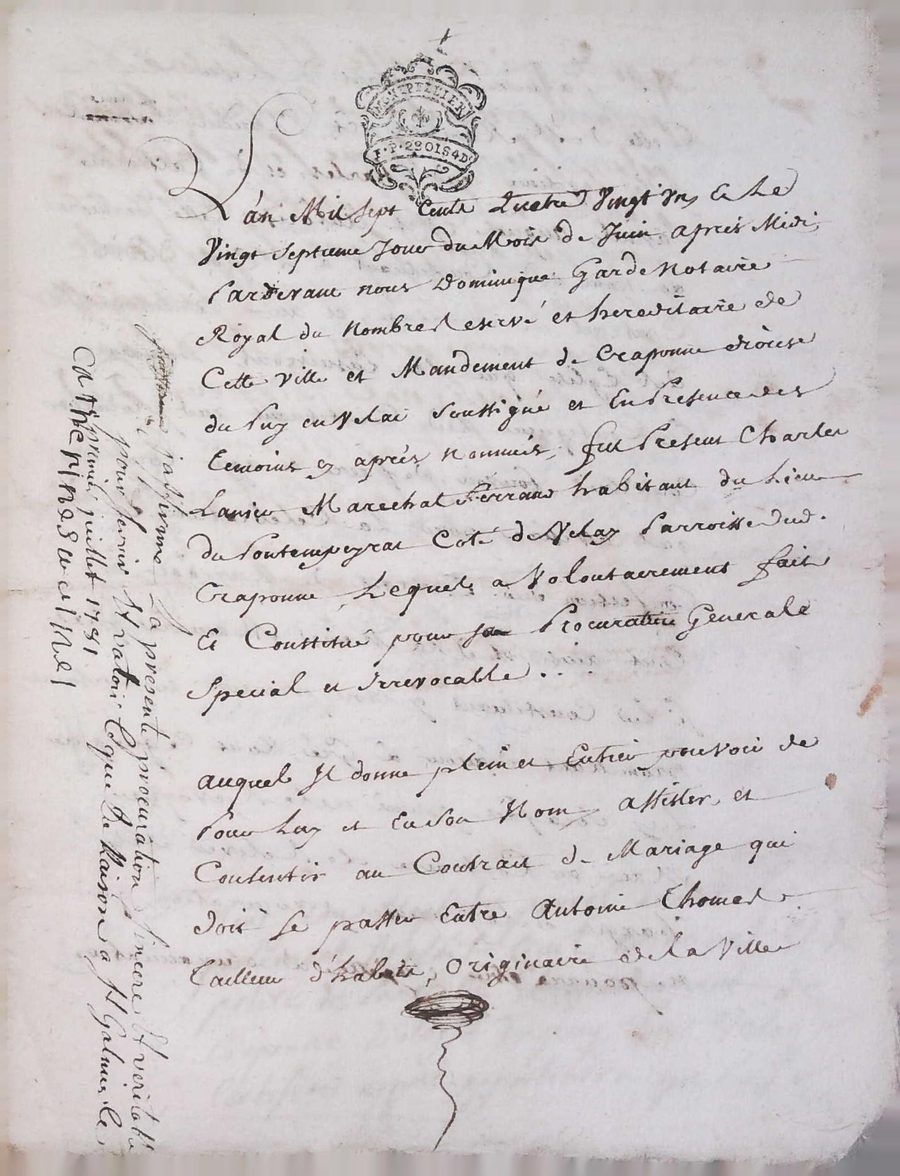 MONTPELLIER
F.P. 2 8 0 1 S 4 D
L'an Mil Sept Cents Quatre Vingt un, & Le
Vingt Septieme Jour du Mois de Juin après Midi
Pardevant nous Dominique Garde Notaire
Royal du Nombre Reservé et hereditaire de
Cette Ville et Mandement de Craponne diocese
du Puy en Velai Soussigné et En Presence des
temoins cy après Nommés, fut Present Charles
Marechal ferrant habitant du Lieu
du Pontempeyrat Coté de Velay Parroisse dud.
Craponne, Lequel a Volontairement fait
Et Constitué pour sa Procuration Generale
Special et Irrevocable . . .
auquel Il donne plein et Entier pouvoir de
Pour Luy et En Son Nom, assister et
Consentir au Contrait de Mariage qui
doit se passer Entre Antoine Thomas
tailleur d'habits, Originaire de la Ville
j'affirme La presente procuration Sincere Et verita
pour servir Et valoir Ce que De Raison a St Galmier le
premier juillet 1781.
Catherine